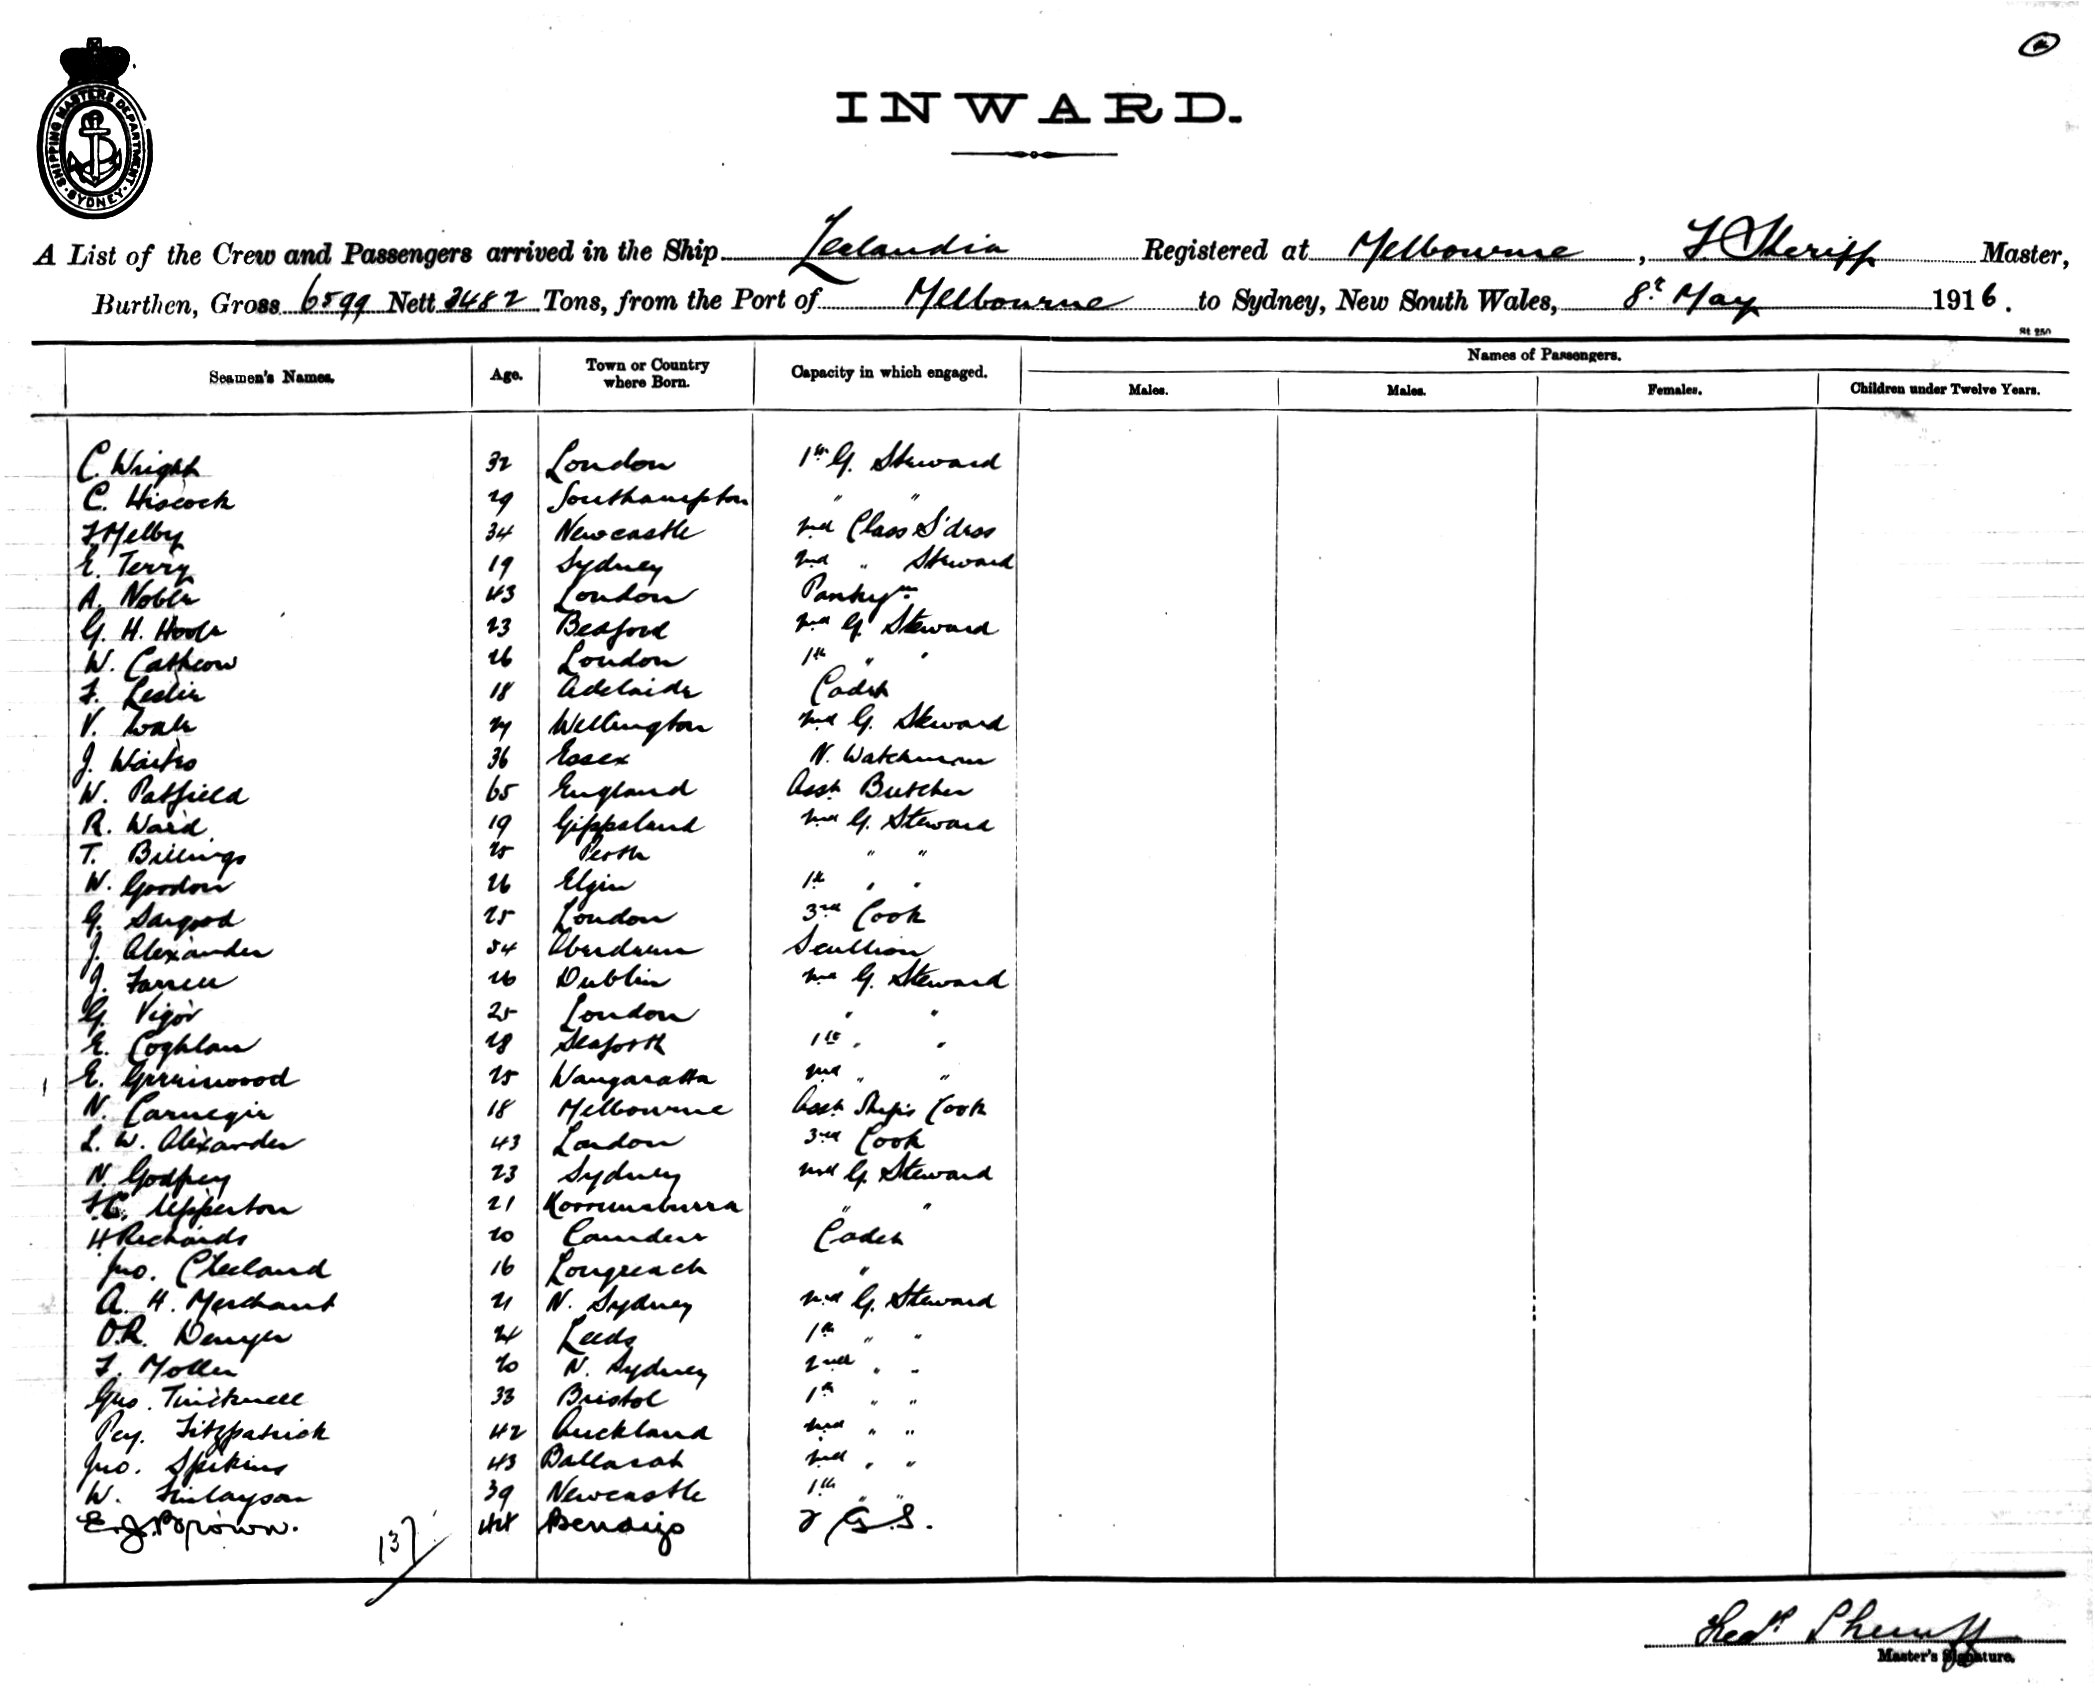 SHIPPING MASTERS DEPARTMENT
SYDNEY
INWARD.
A List of the Crew and Passengers arrived in the Ship Zeelandia Registered at Melbourne, F Sheriff Master,
Burthen, Gross 6599 Nett 3482 Tons, from the Port of Melbourne to Sydney, New South Wales, 8th May 1916.
St 250
Seamen's Names. Age. Town or Country where Born. Capacity in which engaged. Names of Passengers.
Males. Males. Females. Children under Twelve Years.
C. Wright 32 London 1st G. Steward
C. Hiscock 29 Southampton " "
F Melby 34 Newcastle 2nd Class S'dess
E. Terry 19 Sydney 2nd " Steward
A. Noble 43 London Pantrym
G. H. 23 Bedford 2nd G. Steward
W. 26 London 1st " "
F. Leslie 18 Adelaide Cadet
V. 29 Wellington 2nd G. Steward
J. 36 Essex N. Watchman
W. Patfield 65 England Asst Butcher
R. Ward 19 Gippsland 2nd G. Steward
T. Billings 25 Perth " "
W. Gordon 26 Elgin 1st " "
G. Sargood 25 London 3rd Cook
J. Alexander 54 Aberdeen Scullion
J. Farrell 26 Dublin 2nd G. Steward
G. Vigor 25 London " "
E. Coghlan 28 Seaforth 1st " "
E. Greenwood 25 Wangaratta 2nd " "
N. Carnegie 18 Melbourne Asst Ship's Cook
L. W. Alexander 43 London 3rd Cook
N. Godfrey 23 Sydney 2nd G. Steward
F.C. Upperton 21 Korrumburra " "
H Richards 20 Cadet
Jno. Cleeland 16 Longreach "
A. H. Merchant 21 N. Sydney 2nd G. Steward
O.R. Denyer 24 Leeds 1st " "
F. Moller 20 N. Sydney 2nd " "
Geo. 33 Bristol 1st " "
Pcy. Fitzpatrick 42 Auckland 2nd " "
Jno. 43 Ballarat 2nd " "
W. Finlayson 39 Newcastle 1st " "
E. J. Brown. 44 Bendigo 2 G.S.
137
Fredk Sheriff
Master's Signature.